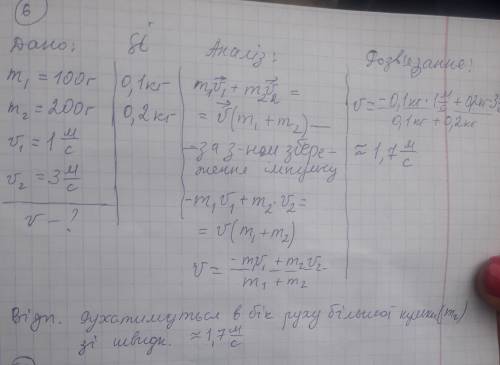 6
Дано:
m₁ = 100г
m₂ = 200г
v₁ = 1 м/с
v₂ = 3 м/с
v – ?
SI
0,1кг
0,2кг
Аналіз:
m₁v⃗₁ + m₂v⃗₂ =
= v⃗(m₁ + m₂) —
– за з-ном збере-
ження імпульсу
-m₁v₁ + m₂·v₂ =
= v(m₁ + m₂)
v = (-m₁v₁ + m₂v₂)/(m₁ + m₂)
Розв'язання:
v = (-0,1кг · 1 м/с + 0,2кг · 3)/(0,1кг + 0,2кг)
≈ 1,7 м/с
Відп. рухатимуться в бік руху більшої кульки (m₂)
зі швидк. ≈ 1,7 м/с